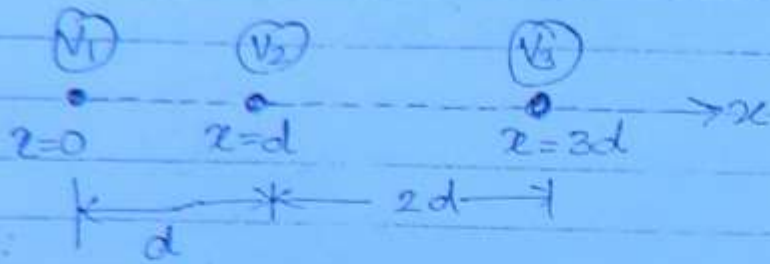 V1 V2 V3
x
x=0 x=d x=3d
d 2d